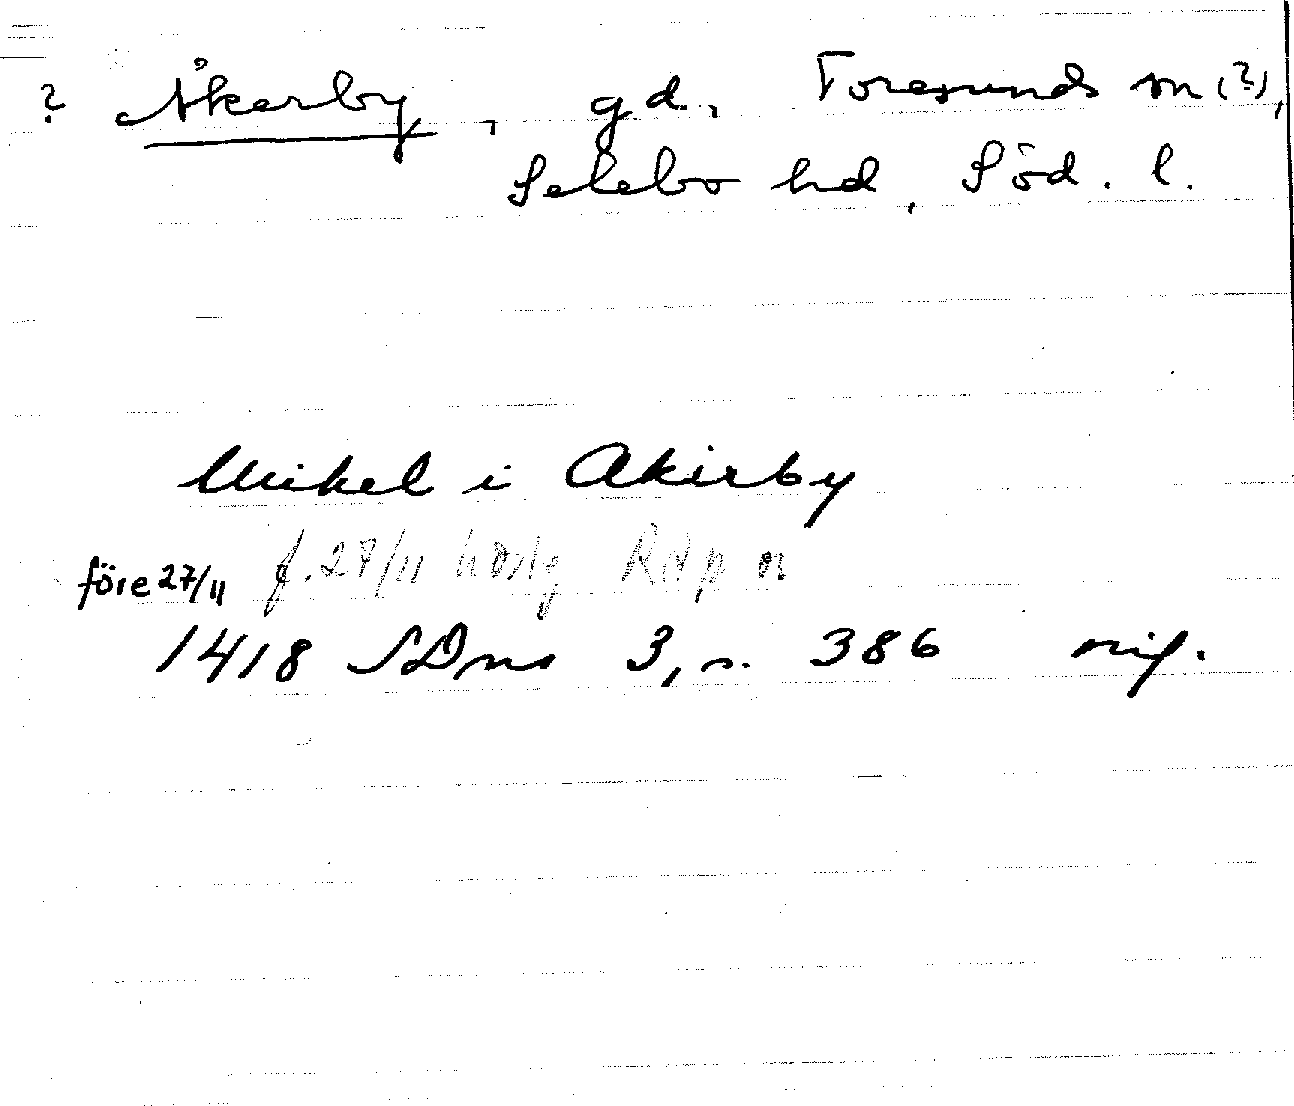 ? Åkerby, gd, Toresunds sn (?),
Selebo hd, Söd. l.
Mikel i Akirby
före 27/11 f. 27/11 RAp or
1418 SDns 3, s. 386 orig.